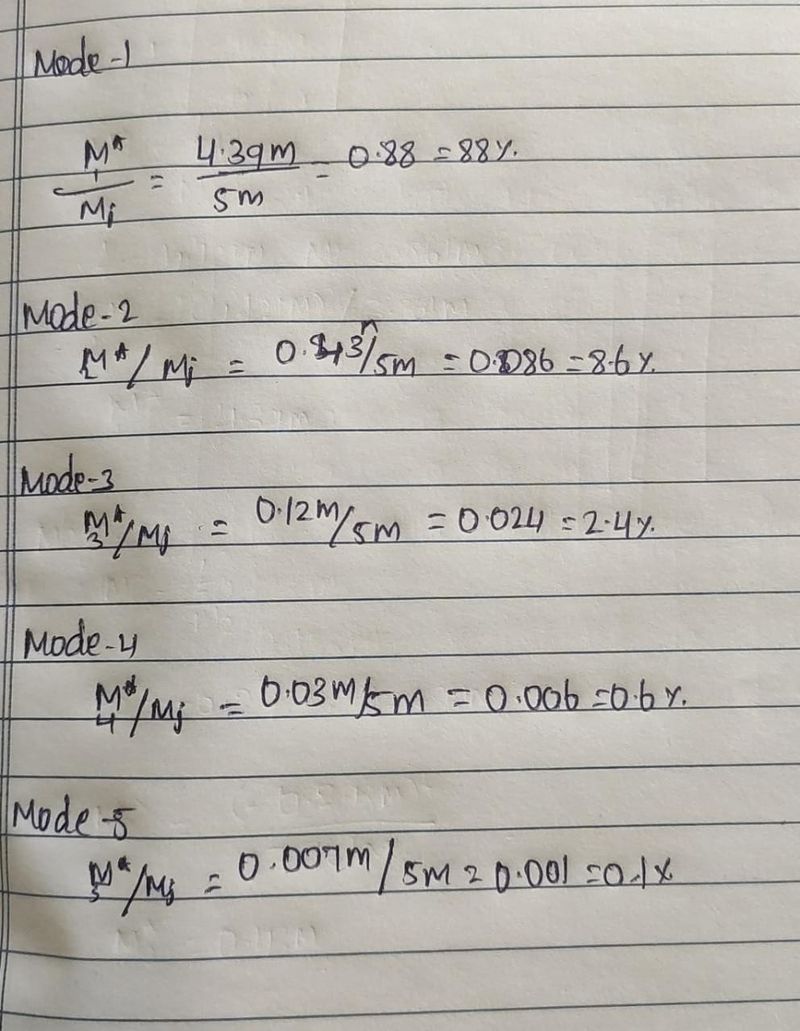 Mode-1
M*1/Mj = 4.39m/5m = 0.88 = 88%.
Mode-2
M*/Mj = 0.43m/5m = 0.086 = 8.6%.
Mode-3
M*3/Mj = 0.12m/5m = 0.024 = 2.4%.
Mode-4
M*4/Mj = 0.03m/5m = 0.006 = 0.6%.
Mode-5
M*5/Mj = 0.007m/5m = 0.001 = 0.1%